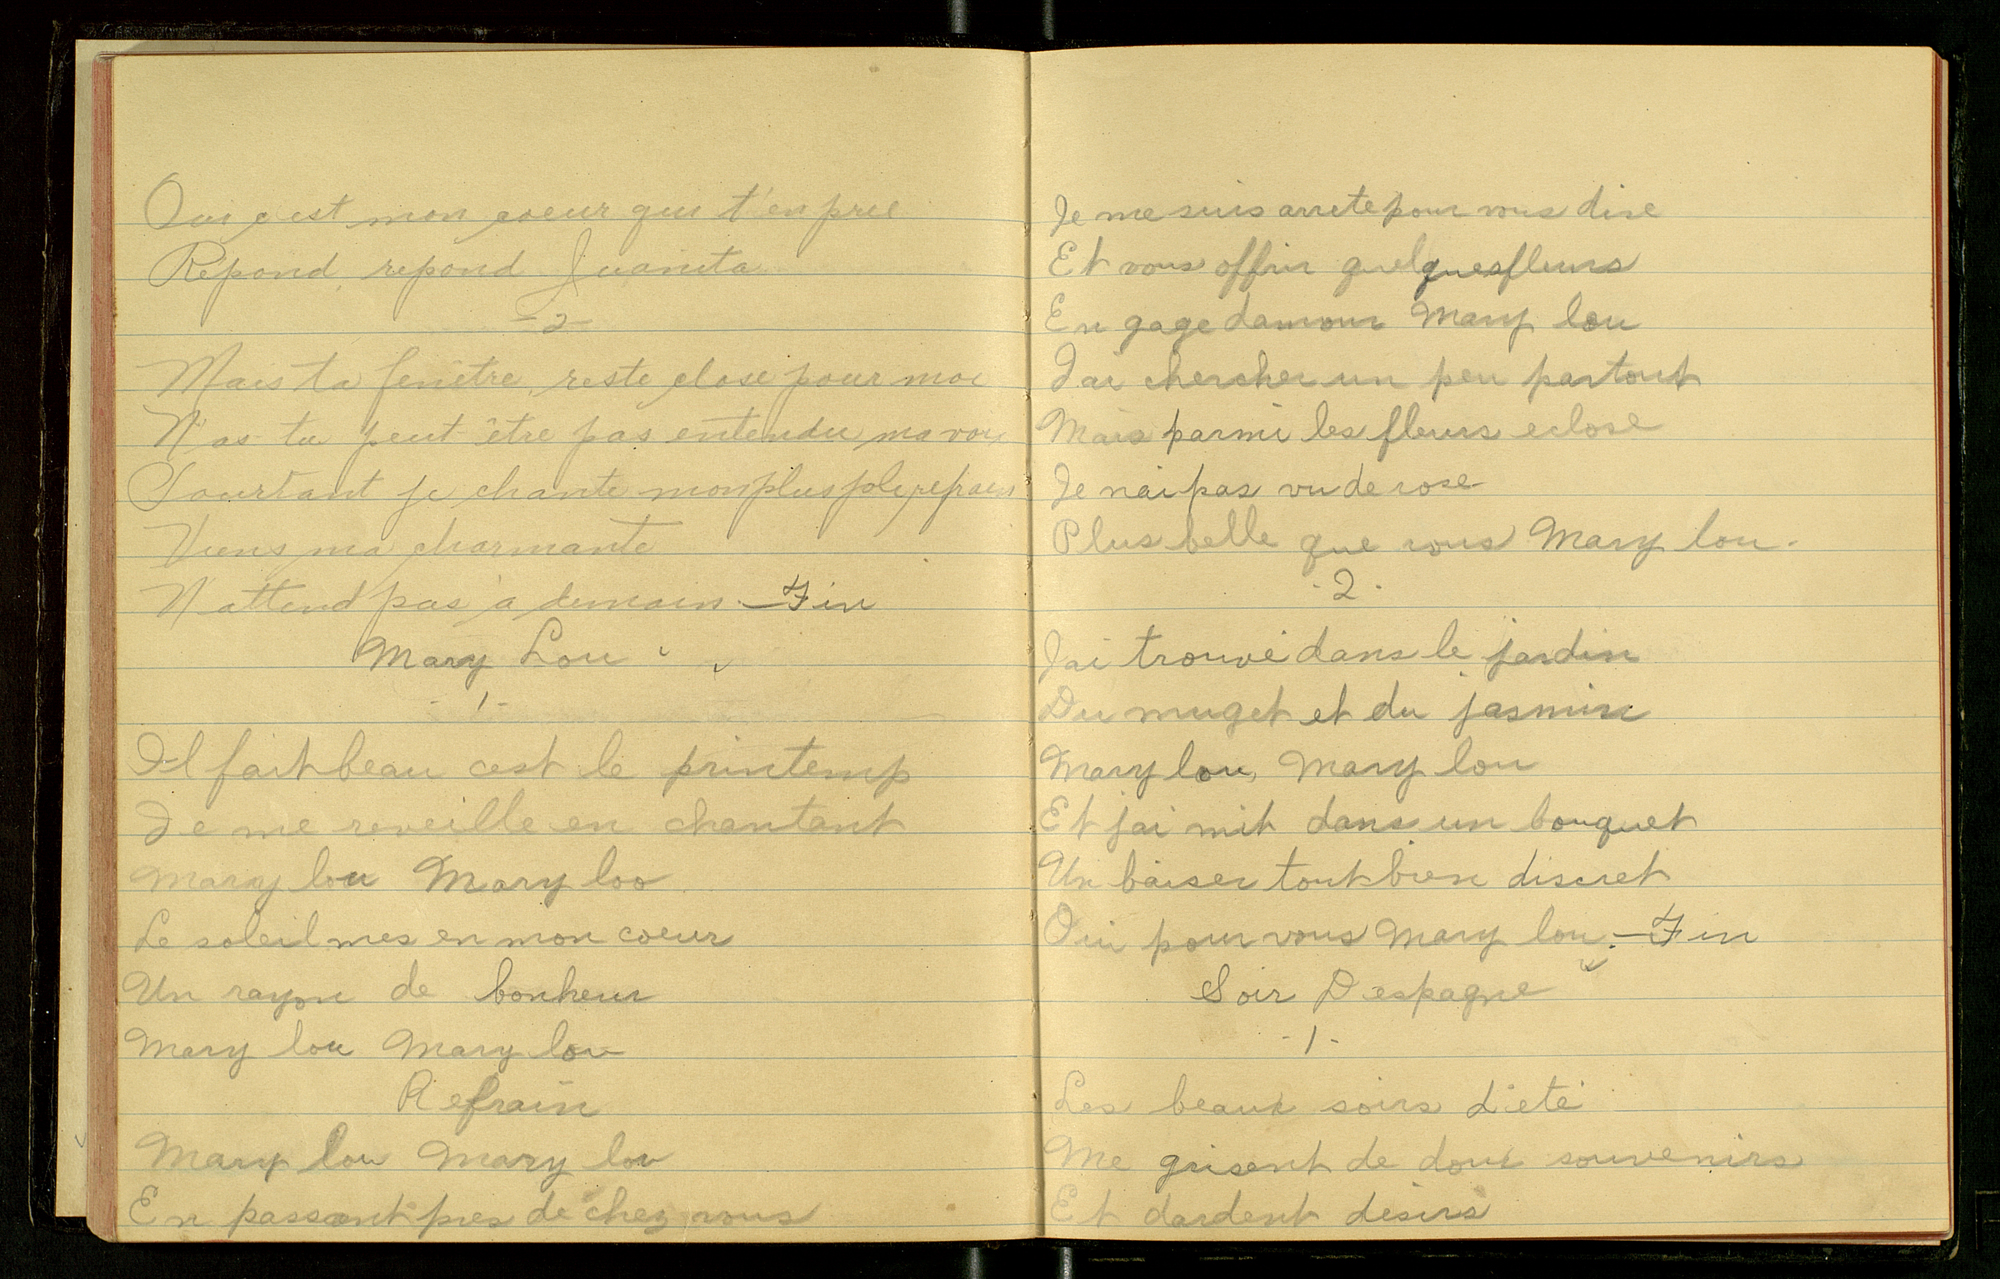 Oui c'est mon coeur qui t'en prie
Repond, repond Juanita
-2-
Mais ta fenêtre, reste close pour moi
N'as tu peut être pas entendu ma voix
Pourtant je chante mon plus joli refrain
Viens ma charmante
N'attend pas à demain.—Fin
Mary Lou
-1-
Il fait beau cest le printemp
Je me reveille en chantant
Mary lou Mary loo
Le soleil mes en mon coeur
Un rayon de bonheur
Mary lou Mary lou
Refrain
Mary lou Mary lou
En passant pres de chez vous
Je me suis arrete pour vous dire
Et vous offrir quelques fleurs
En gage damour Mary lou
Jai chercher un peu partout
Mais parmi les fleurs eclose
Je nai pas vu de rose
Plus belle que vous Mary lou.
-2-
Jai trouvé dans le jardin
Du muget et du jasmin
Mary lou, Mary lou
Et jai mit dans un bouquet
Un baiser tout bien discret
Oui pour vous Mary lou.—Fin
Soir D'espagne
-1-
Les beaux soirs d'été
Me grisent de doux souvenirs
Et dardent désirs